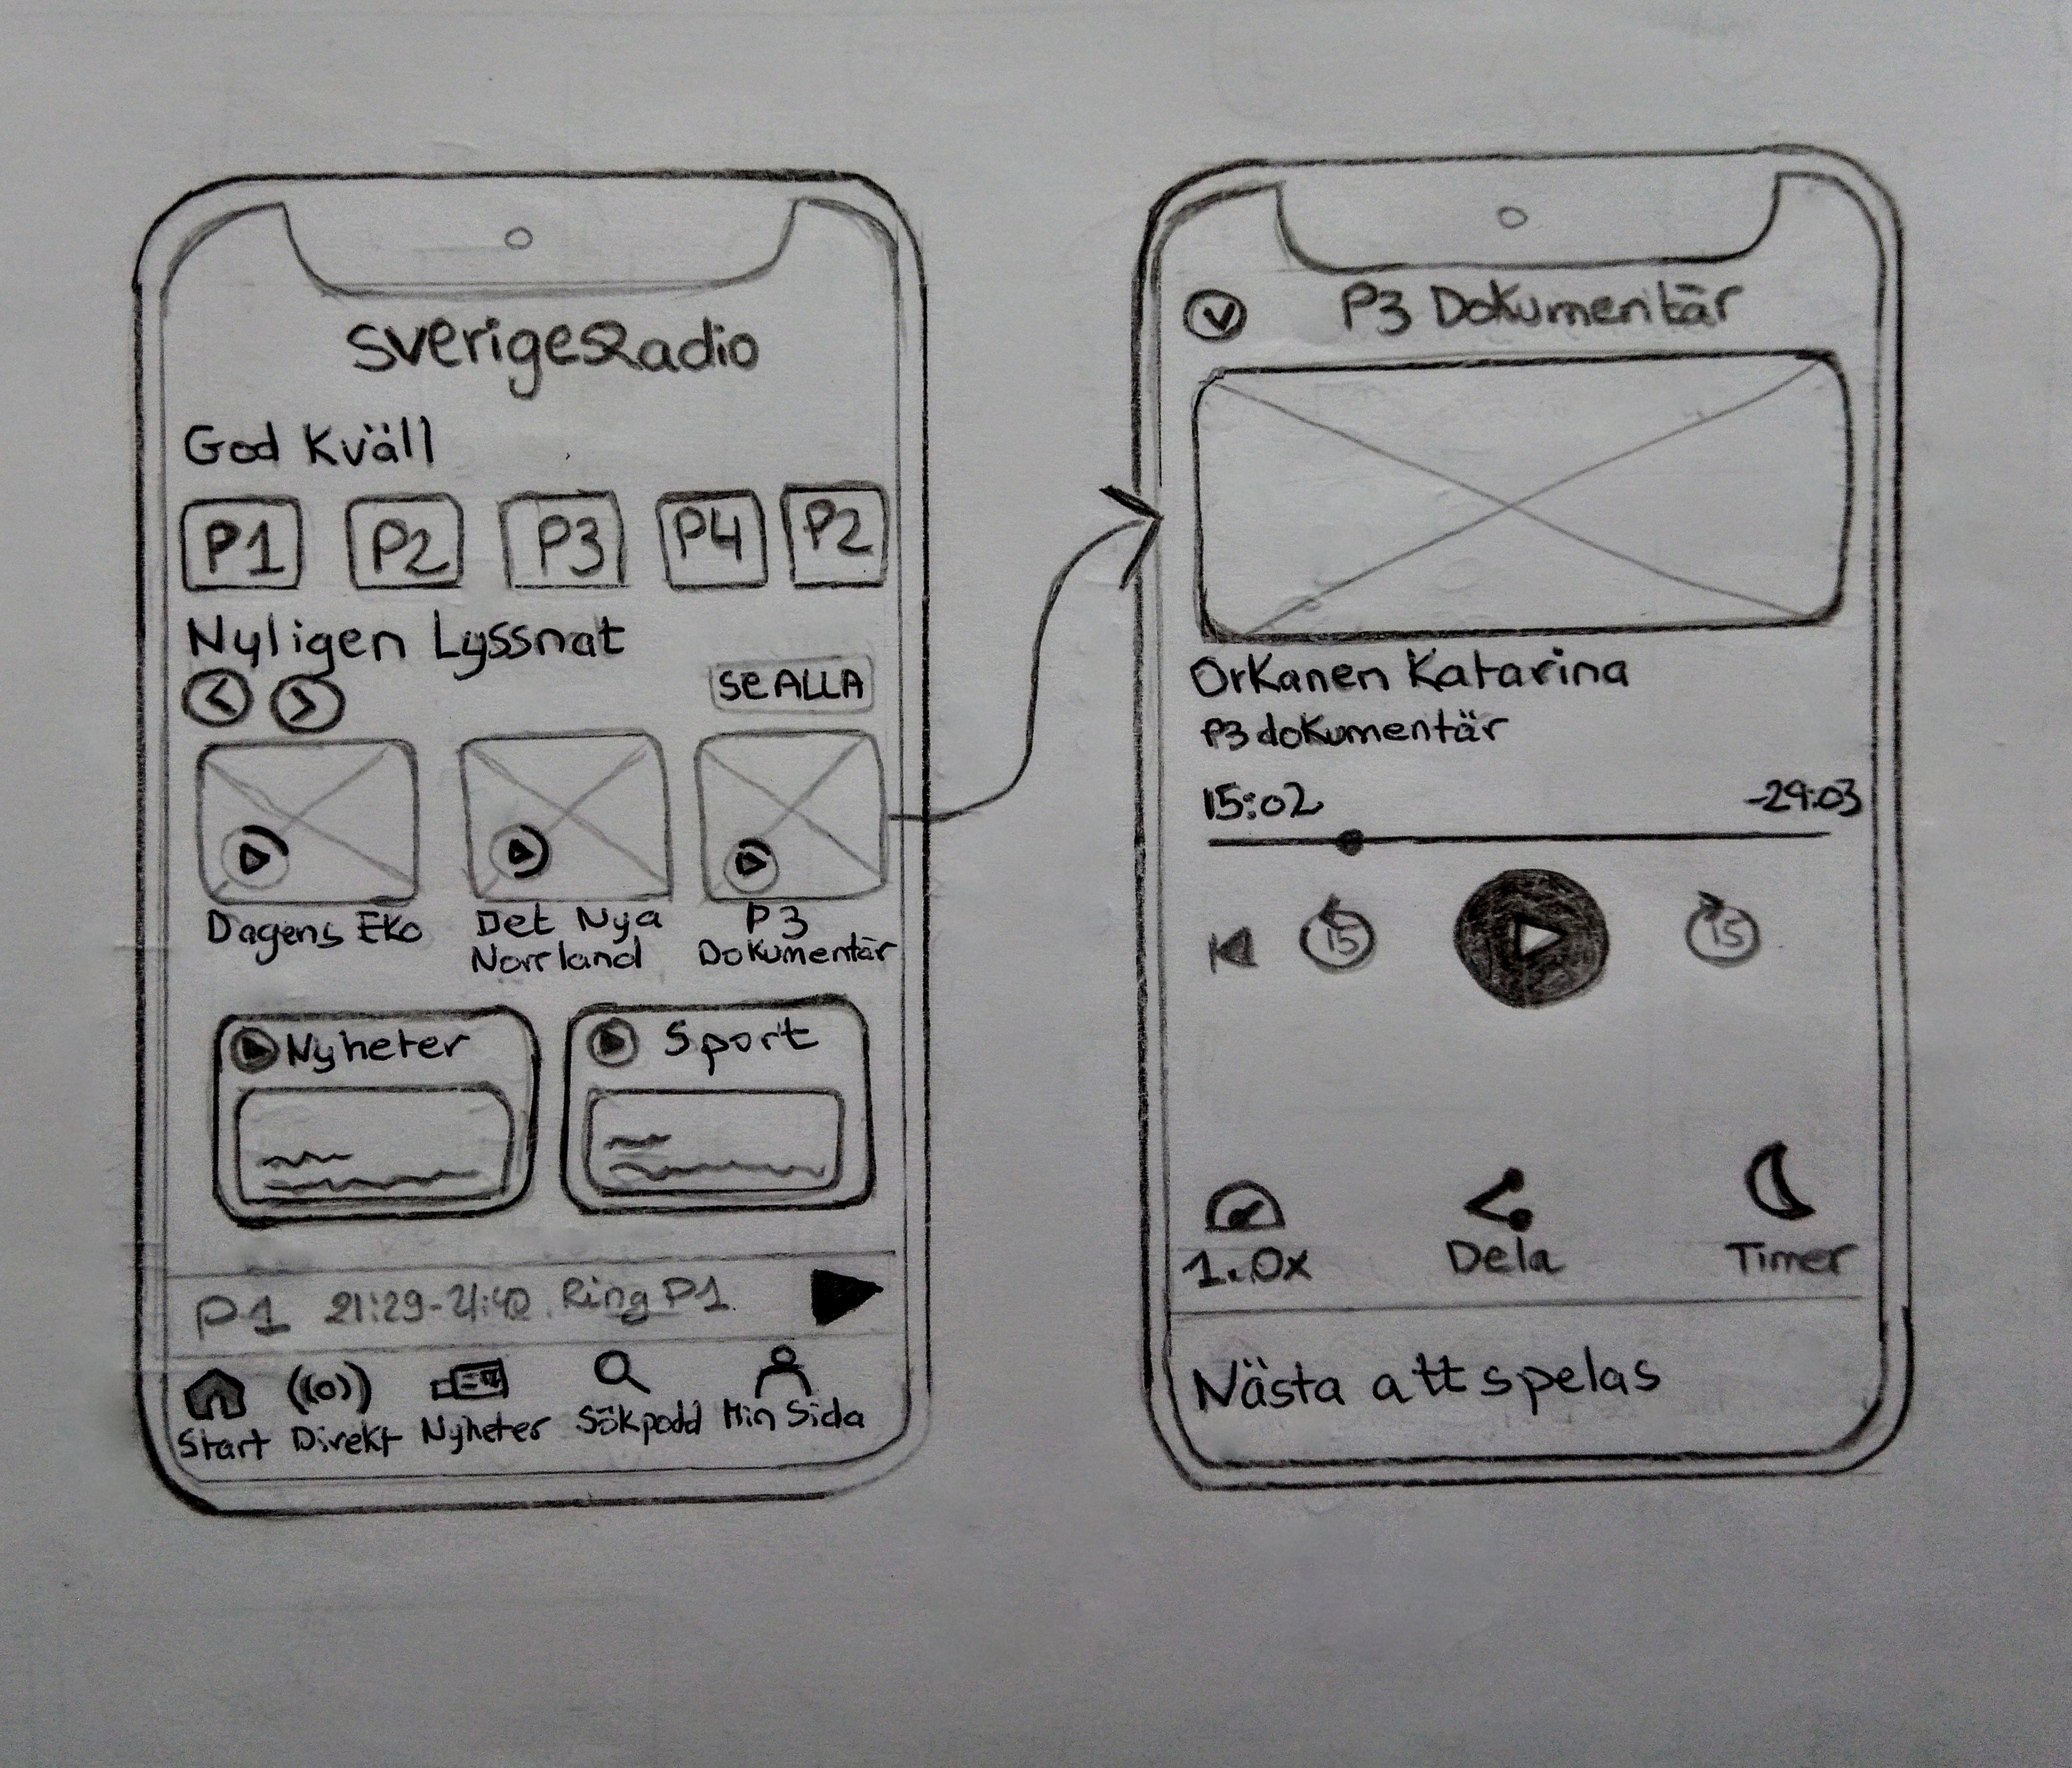 SverigesRadio
God Kväll
P1 P2 P3 P4 P2
Nyligen Lyssnat
SE ALLA
Dagens Eko
Det Nya
Norrland
P3
Dokumentär
Nyheter
Sport
P1 21:29-21:40. Ring P1.
Start Direkt Nyheter Sökpodd Min Sida
P3 Dokumentär
Orkanen Katarina
P3 dokumentär
15:02 -29:03
15 15
1.0x Dela Timer
Nästa att spelas